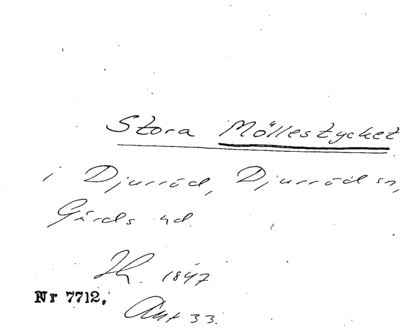 Stora Möllestycket
i Djurröd, Djurröd sn,
Gärds hd.
Jh. 1847
Nr 7712.
Akt 33.